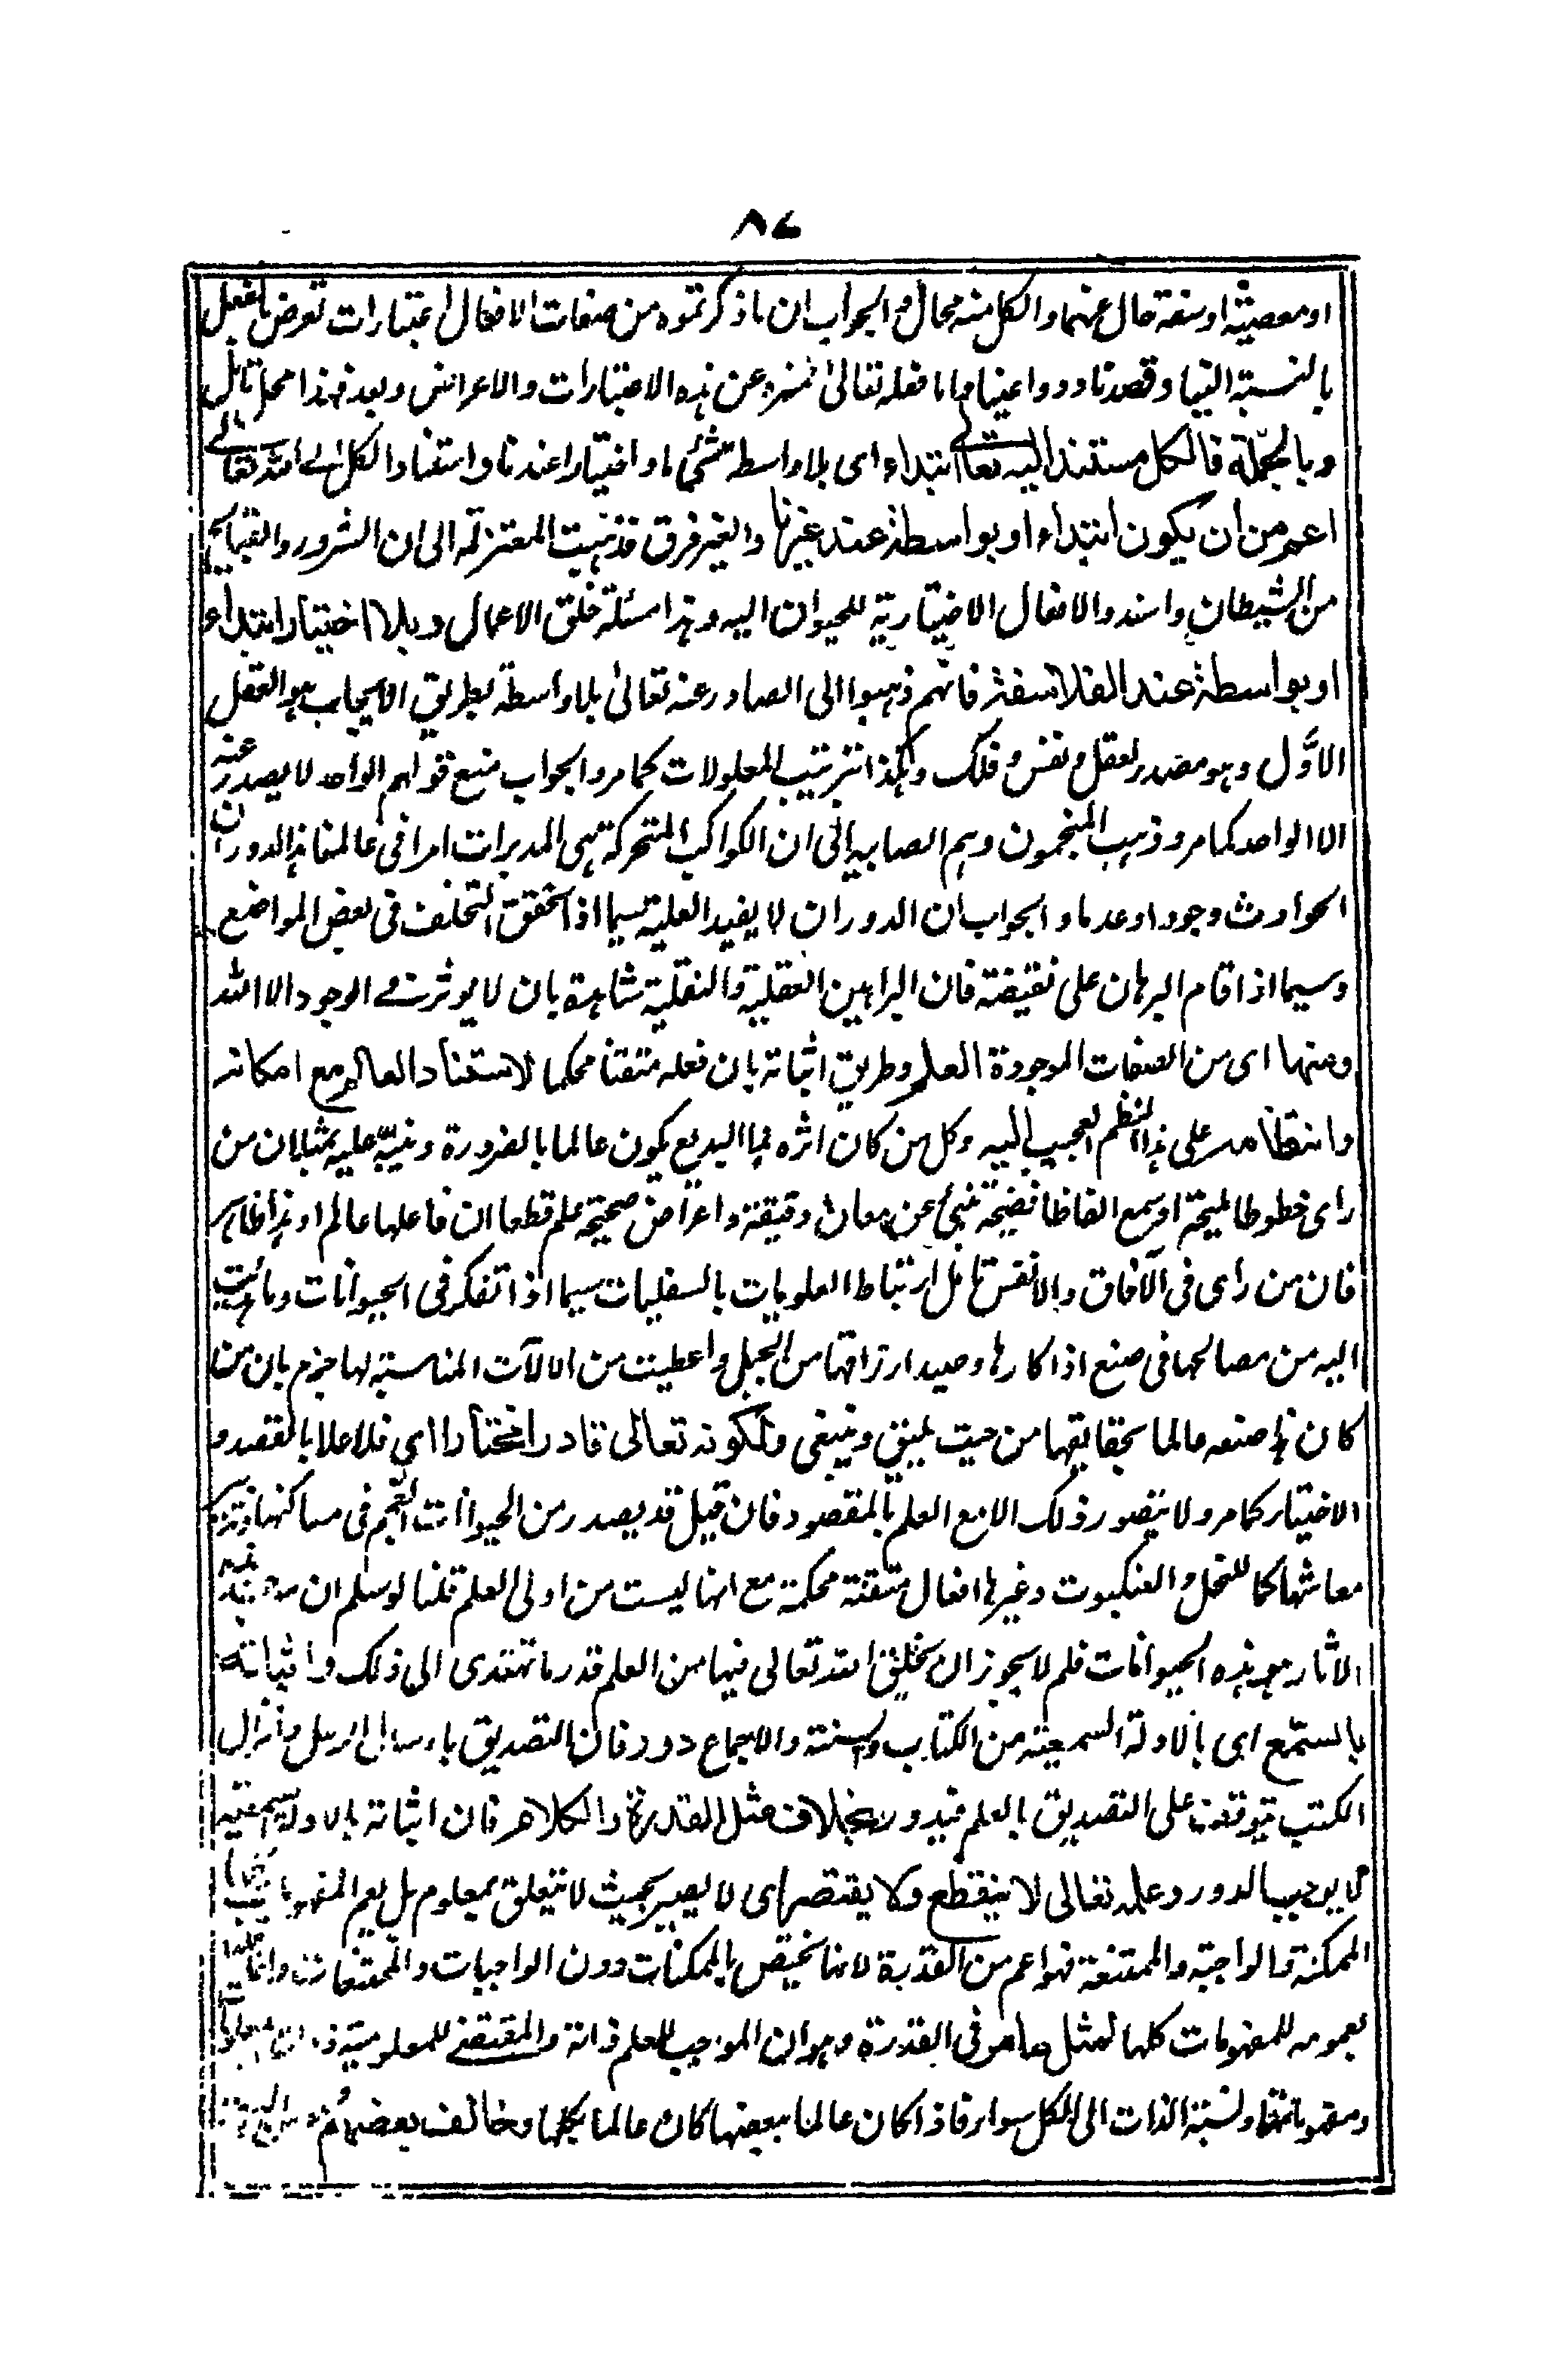 ٨٧
او معصية او سفه خال عنهما والكل منه محال و الجواب ان ما ذكرتموه من صفات الافعال اعتبارات تعرض بالفعل
بالنسبة الينا وقصدنا ودواعينا واما فعله تعالى فمنزه عن هذه الاعتبارات والاعراض وبعد فهذا محل تامل
وبالجملة فالكل مستند اليه تعالى ابتداء اى بلا واسطة شئ ما واختيارا عندنا واستناد الكل الى الله تعالى
اعم من ان يكون ابتداء او بواسطة عند غيرنا والغير فرق فذهبت المعتزلة الى ان الشرور والقبايح
من الشيطان واسندوا الافعال الاختيارية للحيوان اليه وهذا مسئلة خلق الاعمال وبلا اختيار ابتداء
او بواسطة عند الفلاسفة فانهم ذهبوا الى الصادر عنه تعالى بلا واسطة بطريق الايجاب هو العقل
الاوّل وهو مصدر لعقل و نفس و فلك وهكذا تترتب المعلولات كما مر والجواب منع قولهم الواحد لا يصدر عنه
الا الواحد كما مر وذهب المنجمون وهم الصابية الى ان الكواكب المتحركة هى المدبرات امرا فى عالمنا هذا لدوران
الحوادث وجودا وعدما والجواب ان الدوران لا يفيد العلية سيما اذا تحقق التخلف فى بعض المواضع
وسيما اذا قام البرهان على نقيضه فان البراهين العقلية والنقلية شاهدة بان لا موثر فے الوجود الا الله
ومنها اى من الصفات الموجودة العلم وطريق اثباته بان فعله متقنا محكما لاستناد العالم مع امكانه
وانتظامه على هذا النظم العجيب اليه وكل من كان اثره هذا البديع يكون عالما بالضرورة وينبّه عليه بمثل ان من
راى خطوطا مليحة او سمع الفاظا فصيحة تنبئ عن معان دقيقة واغراض صحيحة علم قطعا ان فاعلها عالم او هذا ظاهر
فان من راى فى الآفاق والانفس تامل ارتباط العلويات بالسفليات سيما اذا تفكر فى الحيوانات وما هديت
اليه من مصالحها فى صنع اذاكارها وصيد ارزاقها من الحيل واعطيت من الالآت المناسبة لها جزم بان من
كان هذا صنعه عالما بحقايقها من حيث يليق وينبغى ولكونه تعالى قادرا مختارا اى فلاعلا بالقصد و
الاختيار كما مر ولا يتصور ذلك الا مع العلم بالمقصود فان قيل قد يصدر من الحيوانات العجم فى مساكنها وتدبير
معاشها كما للنحل و العنكبوت وغيرها افعال متقنة محكمة مع انها ليست من اولى العلم قلنا لو سلم ان
الاثار من هذه الحيوانات فلم لا يجوز ان يخلق الله تعالى فيها من العلم قدر ما تهتدى الى ذلك واثباته
بالسمع اى بالادلة السمعية من الكتاب والسنة والاجماع دور فان التصديق بارسال الرسل وانزال
الكتب يتوقف على التصديق بالعلم فيدور بخلاف مثل القدرة والكلام فان اثباته بالادلة السمعية
لا يوجب الدور وعلمه تعالى لا ينقطع ولا يقتصر اى لا يصير بحيث لا يتعلق بمعلوم بل يعم المفهومات
الممكنة والواجبة والممتنعة فهو اعم من القدرة لانها تختص بالممكنات دون الواجبات والممتنعات وانما قلنا
بعمومه للمفهومات كلها لمثل ما مر فى القدرة وهو ان الموجب للعلم ذاته والمقتضے للمعلومية ذوات المعلومات
ومفهوماتها ونسبة الذات الى الكل سواء فاذا كان عالما ببعضها كان عالما بكلها وخالف بعضهم